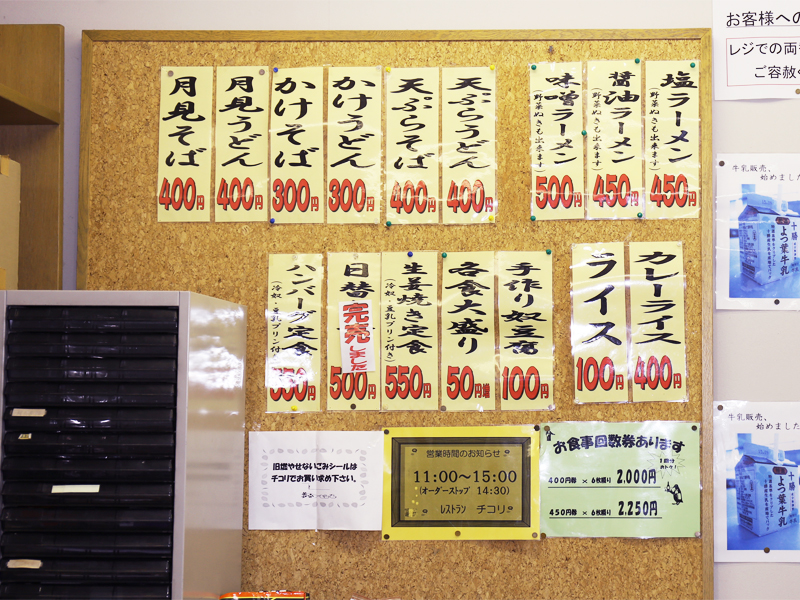 月見そば
400円
月見うどん
400円
かけそば
300円
かけうどん
300円
天ぷらそば
400円
天ぷらうどん
400円
味噌ラーメン
(野菜ぬきも出来ます)
500円
醤油ラーメン
(野菜ぬきも出来ます)
450円
塩ラーメン
(野菜ぬきも出来ます)
450円
ハンバーグ定食
(冷奴・豆乳プリン付き)
550円
日替
完売しました
500円
生姜焼き定食
(冷奴・豆乳プリン付き)
550円
各食大盛り
50円増
手作り奴豆腐
100円
ライス
100円
カレーライス
400円
旧燃やせないごみシールは
チコリでお買い求め下さい。
営業時間のお知らせ
11:00～15:00
(オーダーストップ 14:30)
レストラン チコリ
お食事回数券あります
400円券 × 6枚綴り 2,000円
450円券 × 6枚綴り 2,250円
お客様への
レジでの両
ご容赦
牛乳販売、
始めました
十勝
よつ葉牛乳
牛乳販売、
始めました
十勝
よつ葉牛乳